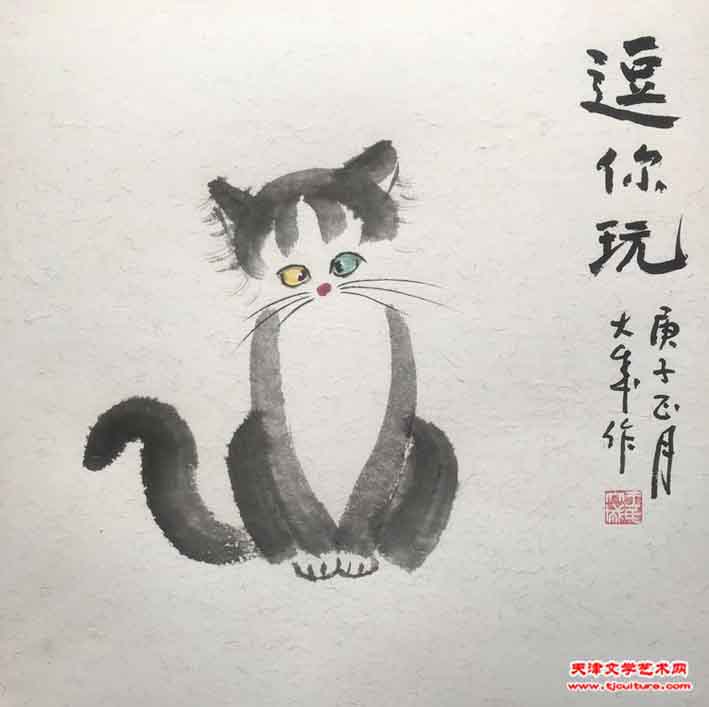 逗你玩
庚子正月
大年作
天津文学艺术网
www.tjculture.com